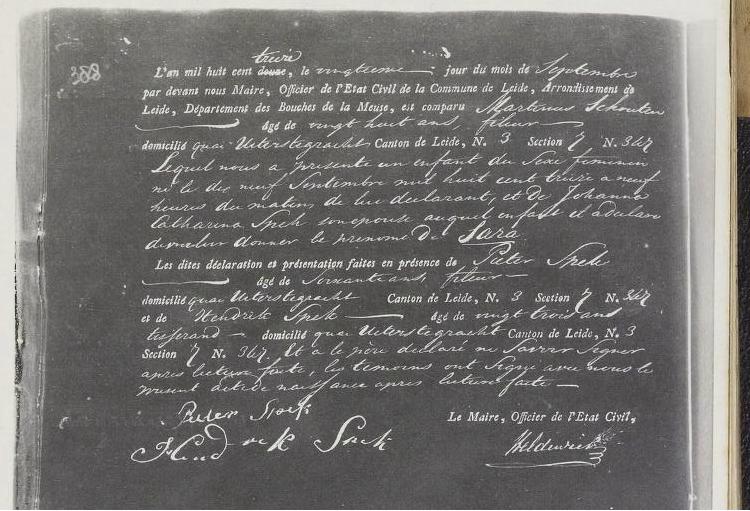 388
treize
L'an mil huit cent douze, le vingtieme jour du mois de Septembre
par devant nous Maire, Officier de l'Etat Civil de la Commune de Leide, Arrondissement de
Leide, Département des Bouches de la Meuse, est comparu Martinus Schouten
âgé de vingt huit ans, fileur
domicilié quai Uiterstegracht Canton de Leide, N. 3 Section 7 N. 347
Lequel nous a présenté un enfant du Sexe feminin
né le dix neuf Septembre mil huit cent treize a neuf
heures du matin de lui declarant, et de Johanna
Catharina Spek son epouse auquel enfant il a declaré
vouloir donner le prenome de Sara
Les dites déclaration et présentation faites en présence de Pieter Spek
âgé de Soixante ans, fileur
domicilié quai Uiterstegracht Canton de Leide, N. 3 Section 7 N. 347
et de Hendrik Spek âgé de vingt trois ans
tisserand domicilié quai Uiterstegracht Canton de Leide, N. 3
Section 7 N. 347. Et a le père declaré ne savoir Signer
apres lecture faite, les temoins ont Signé avec nous le
present acte de naissance apres lecture faite
Pieter Spek
Le Maire, Officier de l'Etat Civil,
Hendrik Spek